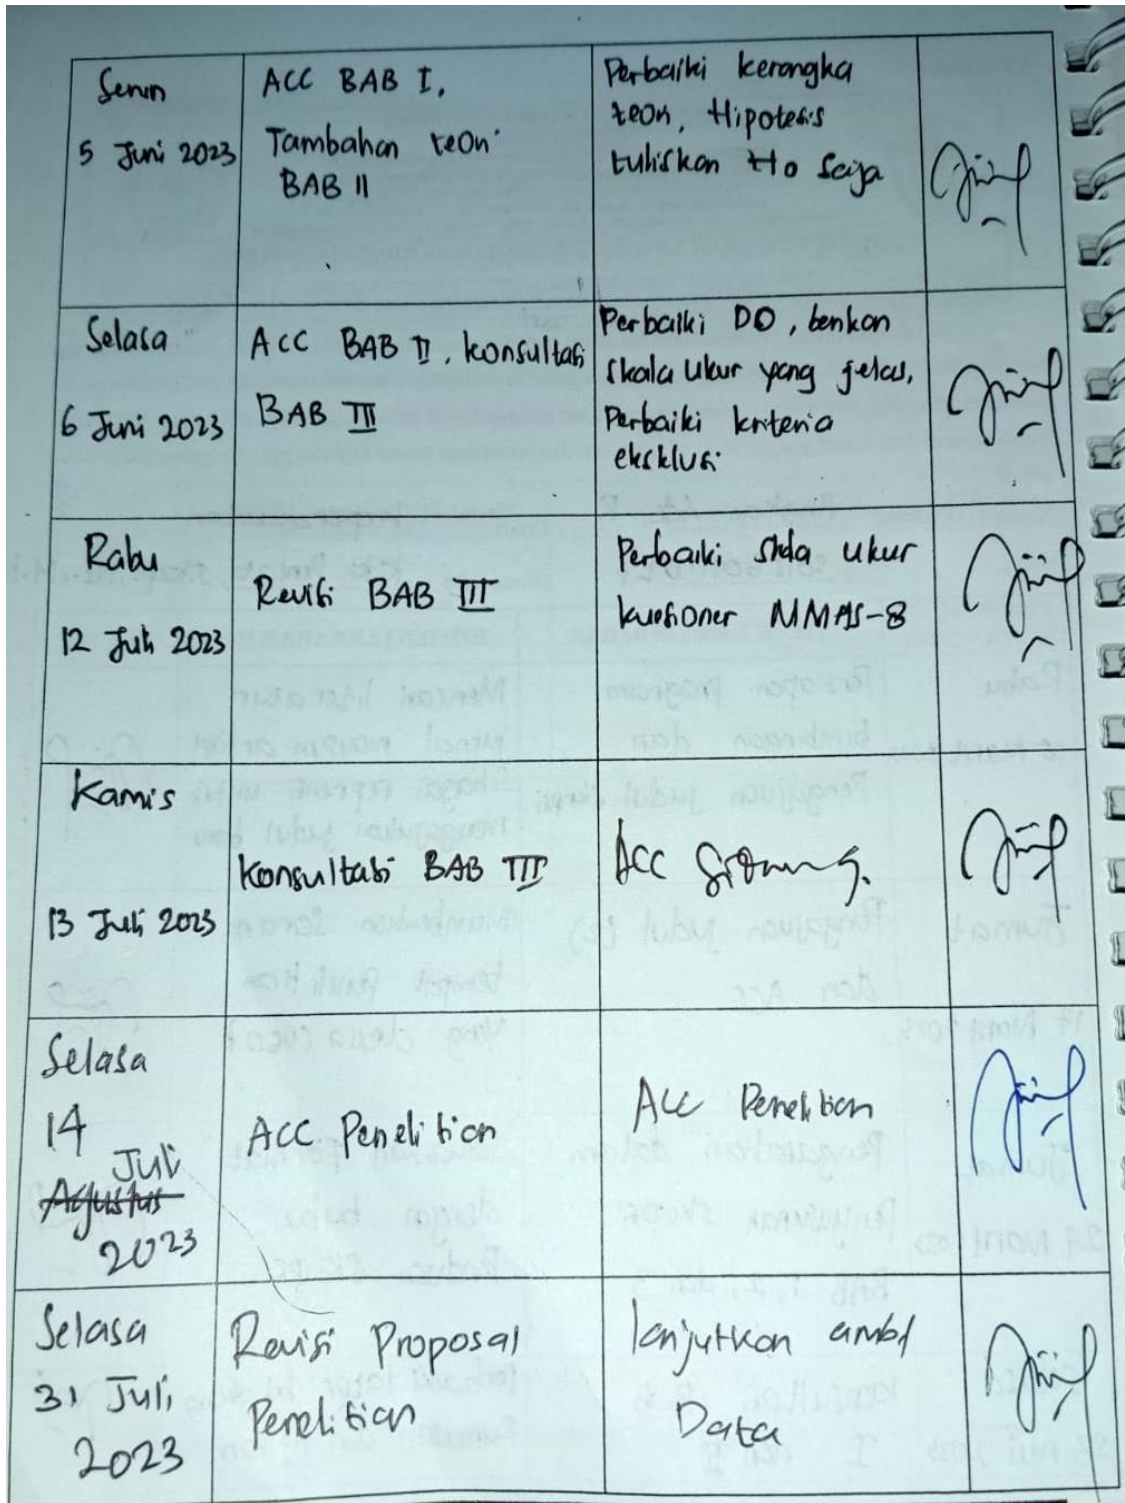 Senin
5 Juni 2023
ACC BAB I,
Tambahan teori
BAB II
Perbaiki kerangka
teori, Hipotesis
tuliskan Ho saja
Selasa
6 Juni 2023
ACC BAB II, konsultasi
BAB III
Perbaiki DO, berikan
skala ukur yang jelas,
Perbaiki kriteria
eksklusi
Rabu
12 Juli 2023
Revisi BAB III
Perbaiki ukur
kuesioner MMAS-8
Kamis
13 Juli 2023
Konsultasi BAB III
ACC Sidang.
Selasa
14
Juli
Agustus
2023
ACC Penelitian
ACC Penelitian
Selasa
31 Juli
2023
Revisi Proposal
Penelitian
lanjutkan ambil
Data